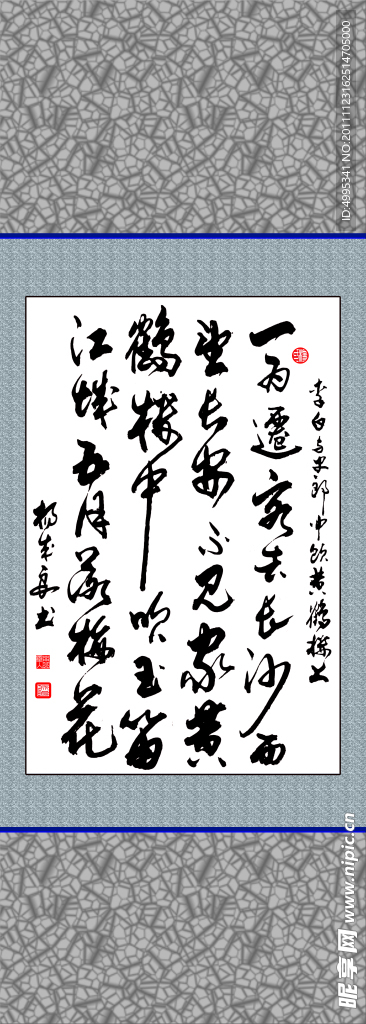 李白与史郎中饮黄鹤楼上
一为遷客去长沙西
望长安不见家黄
鶴楼中吹玉笛
江城五月落梅花
书
ID:4995341 NO:20111123162514705000
昵享网 www.nipic.cn